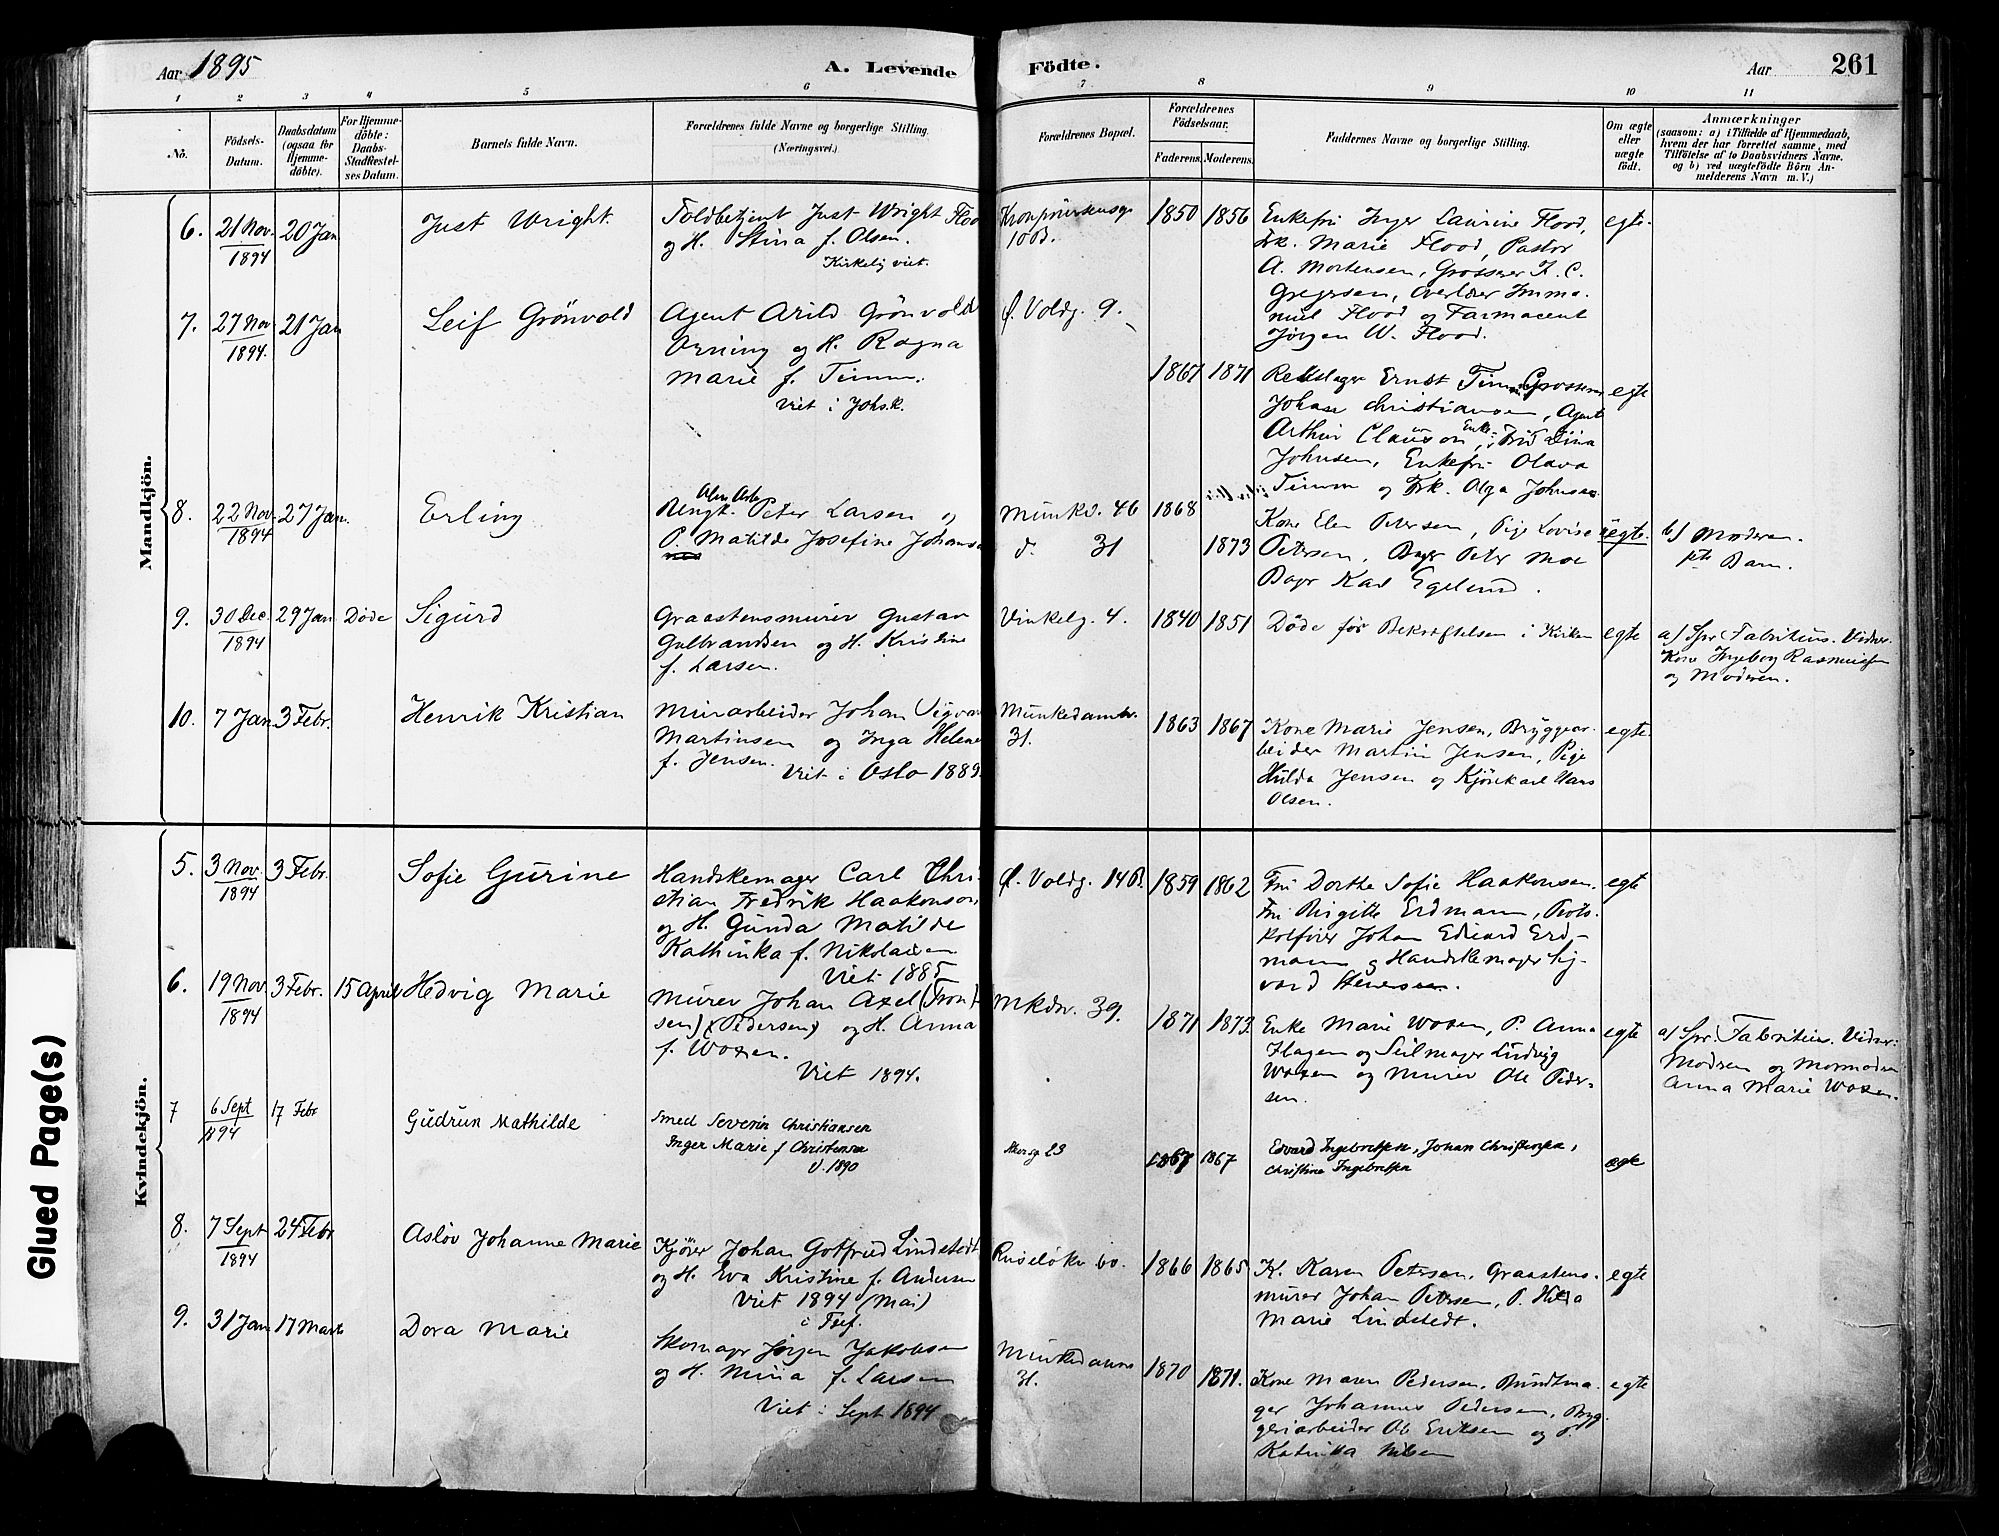 Aar 1895
A. Levende Födte.
Aar
261
1 2 3 4 5 6 7 8 9 10 11
No.
Födsels-Datum.
Daabsdatum (ogsaa for Hjemmedöbte).
For Hjemmedöbte: Daabs-Stadfæstelses Datum.
Barnets fulde Navn.
Forældrenes fulde Navne og borgerlige Stilling. (Næringsvei.)
Forældrenes Bopæl.
Forældrenes Födselsaar.
Faderens. Moderens.
Faddernes Navne og borgerlige Stilling.
Om ægte eller uægte födt.
Anmærkninger
(saasom: a) i Tilfælde af Hjemmedaab,
hvem der har forrettet samme, med
Tilföielse af to Daabsvidners Navne.
og b) ved uægtefödte Börn An-
melderens Navn m. V.)
Mandkjön.
6. 21 Nov. 1894 20 Jan
Just Wright.
Toldbetjent Just Wright Flood
og H. Stina f. Olsen.
Kirkelig viet.
Kronprinsensg.
10B.
1850 1856
Enkefru Inger Laurine Flood,
Frk. Marie Flood, Pastor
A. Mortensen, Grosserer F. C.
Gregersen, Overlærer Imma-
nuel Flood og Farmaceut
Jörgen W. Flood.
egte.
7. 27 Nov 1894. 21 Jan
Leif Grönvold
Agent Arild Grönvold
Orning og H. Ragna
Marie f. Timm.
Viet i Johs.k.
Ø. Voldg. 9.
1867 1871
Rebslager Ernst Timm, Grosserer
Johan Christiansen, Agent
Arthur Clauson, Enkefru Lina
Johnsen, Enkefru Olava
Timm og Frk. Olga Johnsen.
egte
8. 22 Nov. 1894 27 Jan.
Erling
Ungk. Peter Larsen og
P. Matilde Josefine Johansen
Munkd. 46
d. 31
1868
1873
Kone Elen Petersen, Pige Lovise
Petersen, Bager Peter Moe
Bager Karl Egelund.
uegte.
b) Moderen.
Barn.
9. 30 Dec. 1894 29 Jan Döde
Sigurd
Graastensmurer Gustav
Gulbrandsen og H. Kristine
f. Larsen.
Vinkelg. 4.
1840 1851
Döde för Bekræftelsen i Kirken
egte
a) Spr. Fabritius. Vidner.
Kone Ingeborg Rasmussen
og Moderen.
10. 7 Jan. 3 Febr.
Henrik Kristian
Murarbeider Johan Sigvar
Martinsen og Inga Helene
f. Jensen.
Viet i Oslo 1889.
Munkedamsv.
31.
1863 1867
Kone Marie Jensen, Bryggear-
beider Martin Jensen, Pige
Hulda Jensen og Kjörekarl Hans
Olsen.
egte.
Kvindekjön.
5. 3 Nov. 1894 3 Febr.
Sofie Gurine
Handskemager Carl Chri-
stian Fredrik Haakonson
og H. Gunda Matilde
Kathinka f. Nikolaisen
Viet 1885
Ø. Voldg. 14B.
1859 1862
Fru Dorthe Sofie Haakonsen.
Fru Birgitte Erdmann, Proto-
kolfører Johan Edvard Erd-
mann og Handskemager Sig-
vard Stenersen.
egte
6. 19 Nov 1894 3 Febr. 15 April
Hedvig Marie
Murer Johan Axel (Iron-
sen) (Pedersen) og H. Anna
f. Woxen.
Viet 1894.
Mkdv. 39.
1871 1873.
Enke Marie Woxen, P. Anna
Hagen og Seilmager Ludvig
Woxen og Murer Ole Peder-
sen.
egte
a) Spr. Fabritius. Vidner:
Modren og Mormodren
Anna Marie Woxen.
7 6 Sept 1894 17 Febr
Gudrun Mathilde
Smed Severin Christiansen
Inger Marie f Christensen
V. 1890
Akersg 23
1867 1867
Edvard Ingebretsen, Johan Christensen,
Christine Ingebretsen
egte
8. 7 Sept 1894 24 Febr
Aslöv Johanne Marie
Kjører Johan Gotfried Lindstedt
og H. Eva Kristine f. Andersen
Viet 1894 (Mai)
i Tref.
Ruseløkv 60.
1866 1865
K. Karen Petersen, Graastens-
murer Johan Petersen, P. Hilda
Marie Lindstedt.
egte
9. 31 Jan 17 Marts
Dora Marie
Skomager Jörgen Jakobsen
og H. Mina f. Larsen
Viet i Sept 1894
Munkedamsv
31.
1870 1871.
Kone Maren Pedersen, Bundtma-
ger Johannes Pedersen, Bryg-
geriarbeider Ole Eriksen og P.
Katinka Nilsen
egte
Glued Page(s)